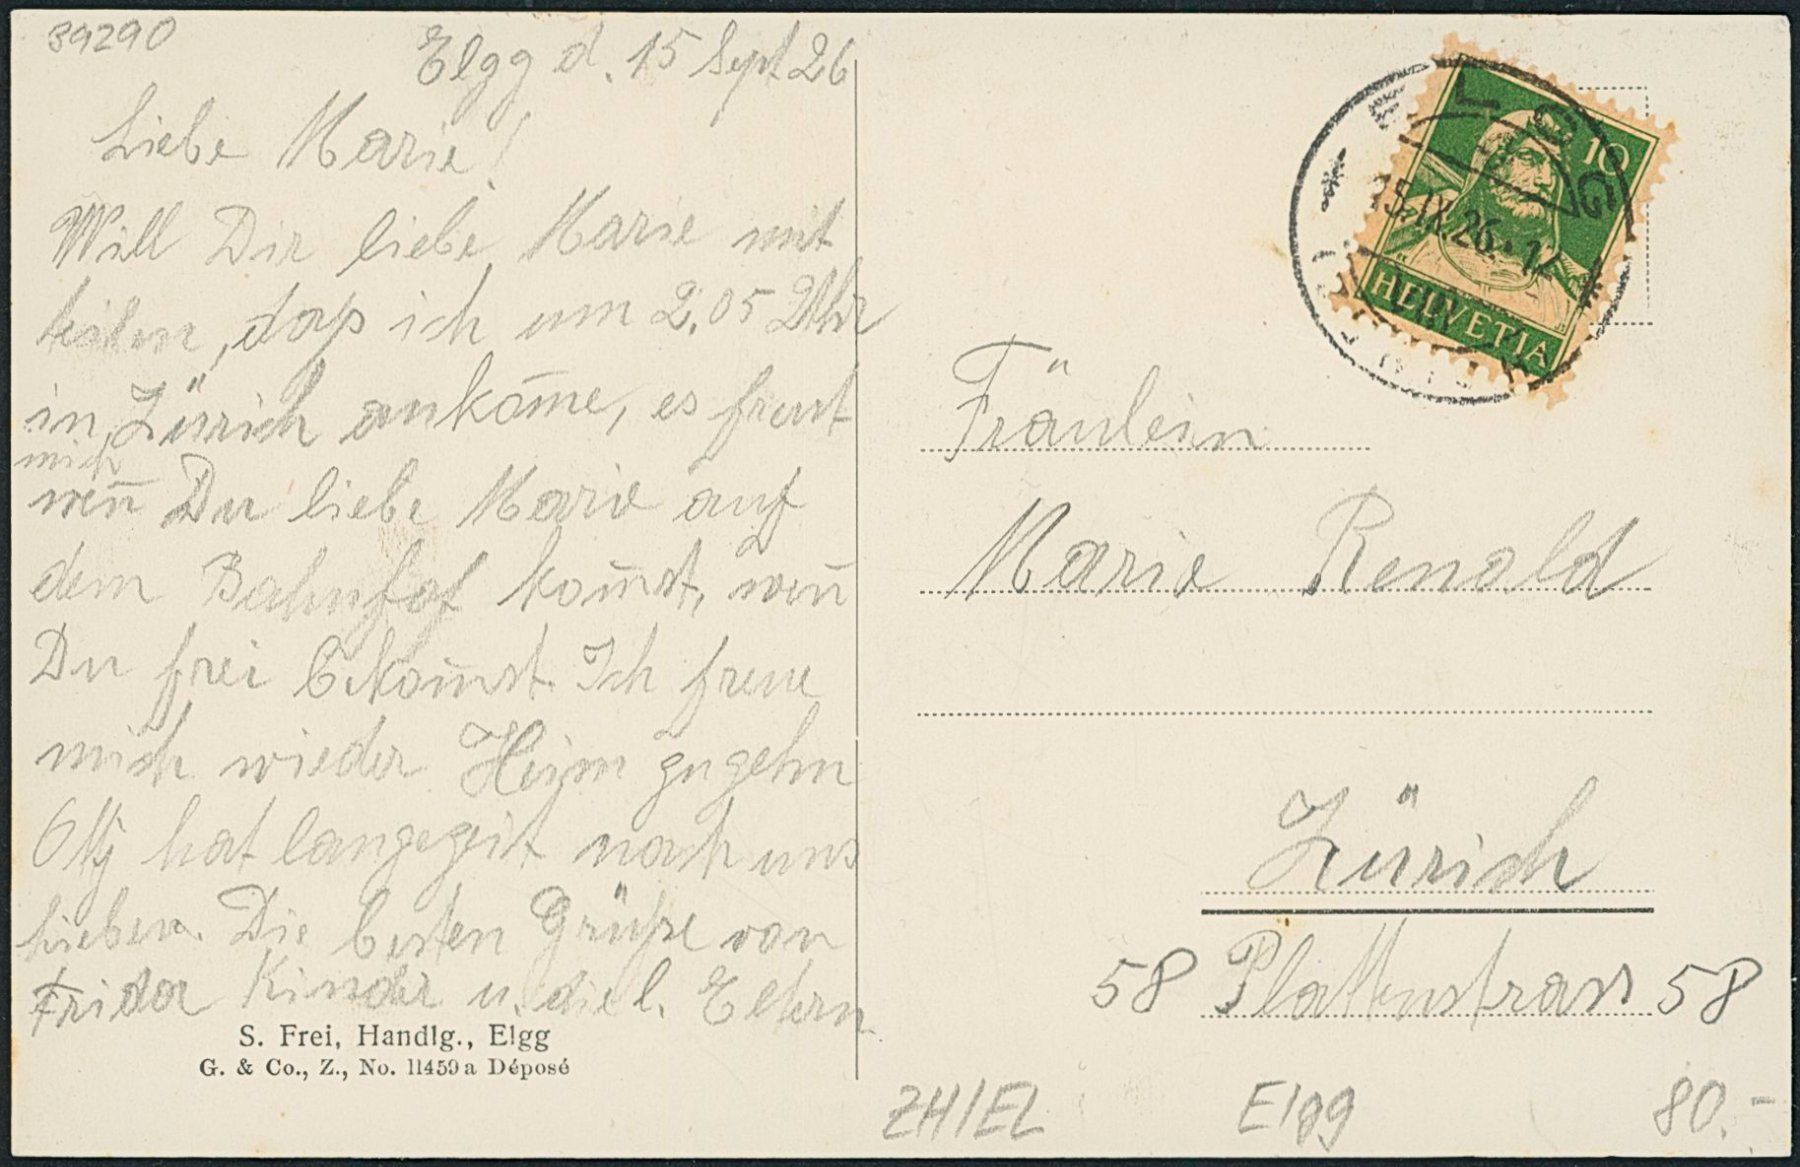 39290
Elgg d. 15 Sept 26
Liebe Marie!
Will Dir liebe Marie mit
teilen, daß ich um 2.05 Uhr
in Zürich ankom̄e, es freut
mich
wen̄ Du liebe Marie auf
dem Bahnhof kom̄st, wen̄
Du frei bekom̄st. Ich freue
mich wieder Heim zu gehn
hat langezeit nach uns
Lieben. Die besten Grüße von
Frida Kinder u. die l. Eltern
S. Frei, Handlg., Elgg
G. & Co., Z., No. 11459 a Déposé
ELGG
15.IX.26.-12
10
HELVETIA
Fräulein
Marie Renold
Zürich
58 Plattenstrass 58
ZH/EL Elgg 80.-